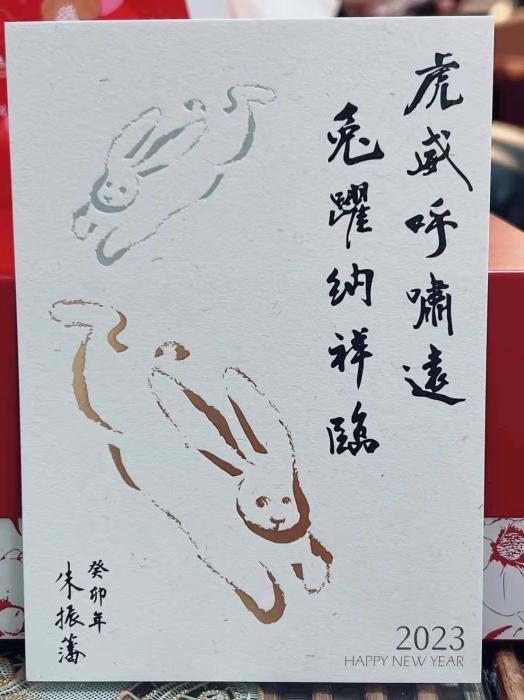 虎威呼嘯遠
兎躍納祥臨
癸卯年
朱振藩
2023
HAPPY NEW YEAR